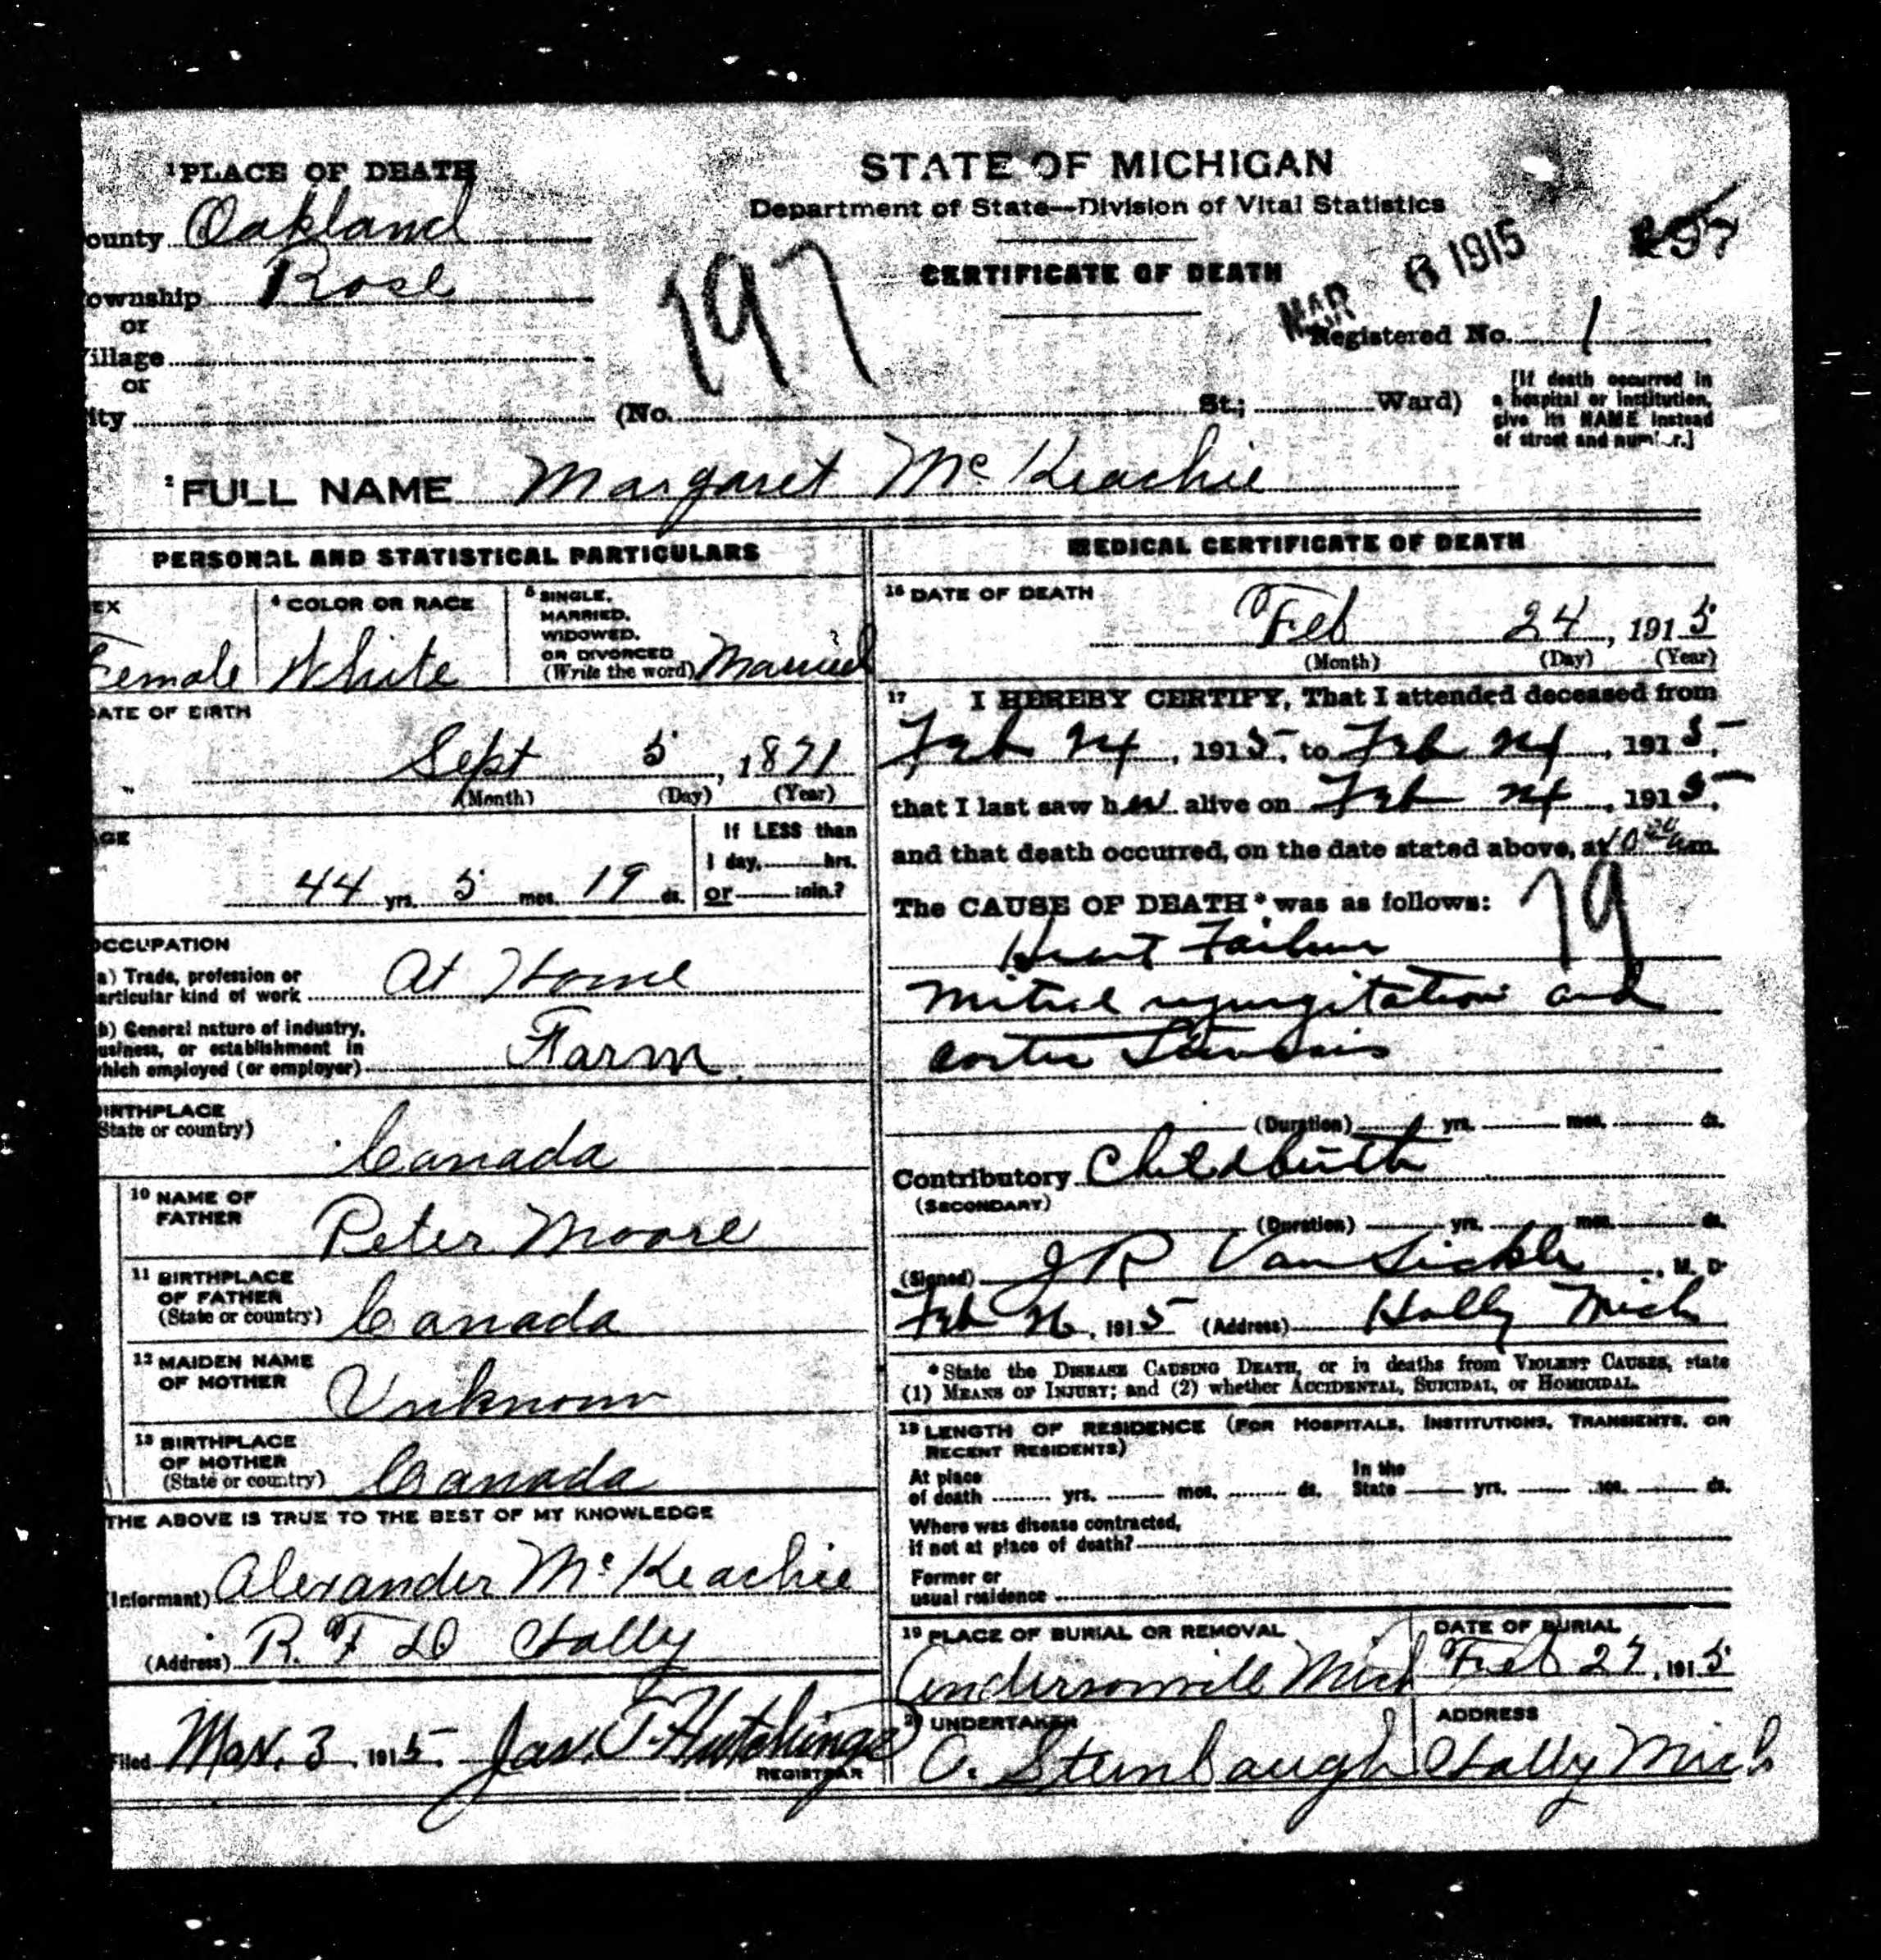 1 PLACE OF DEATH
ounty Oakland
ownship Rose
or
illage
or
ity
STATE OF MICHIGAN
Department of State—Division of Vital Statistics
CERTIFICATE OF DEATH
197
MAR 6 1915
Registered No. 1
(No. St.; Ward)
[If death occurred in
a hospital or institution,
give its NAME instead
of street and num r.]
2 FULL NAME Margaret McKeachie
PERSONAL AND STATISTICAL PARTICULARS
EX
Female
4 COLOR OR RACE
White
5 SINGLE,
MARRIED,
WIDOWED,
OR DIVORCED
(Write the word) Married
ATE OF BIRTH
Sept 5, 1871
(Month) (Day) (Year)
GE
44 yrs. 5 mos. 19 ds.
If LESS than
1 day, hrs.
or min.?
OCCUPATION
a) Trade, profession or
articular kind of work At Home
b) General nature of industry,
usiness, or establishment in
hich employed (or employer) Farm
BIRTHPLACE
State or country)
Canada
10 NAME OF
FATHER
Peter Moore
11 BIRTHPLACE
OF FATHER
(State or country) Canada
12 MAIDEN NAME
OF MOTHER
Unknown
13 BIRTHPLACE
OF MOTHER
(State or country) Canada
THE ABOVE IS TRUE TO THE BEST OF MY KNOWLEDGE
(Informant) Alexander McKeachie
(Address) R. F D Holly
Filed Mar. 3, 1915. Jas. T. Hutchings
REGISTRAR
MEDICAL CERTIFICATE OF DEATH
16 DATE OF DEATH
Feb 24, 1915
(Month) (Day) (Year)
17 I HEREBY CERTIFY, That I attended deceased from
Feb 24, 1915, to Feb 24, 1915,
that I last saw her alive on Feb 24, 1915,
and that death occurred, on the date stated above, at 10 am.
The CAUSE OF DEATH* was as follows:
79
Heart Failure
Mitral regurgitation and
aortic Stenosis
(Duration) yrs. mos. ds.
Contributory Childbirth
(SECONDARY)
(Duration) yrs. mos. ds.
(Signed) J R Van Sickle, M. D.
Feb 26, 1915 (Address) Holly Mich
*State the DISEASE CAUSING DEATH, or in deaths from VIOLENT CAUSES, state
(1) MEANS OF INJURY; and (2) whether ACCIDENTAL, SUICIDAL, or HOMICIDAL.
18 LENGTH OF RESIDENCE (FOR HOSPITALS, INSTITUTIONS, TRANSIENTS, OR
RECENT RESIDENTS)
At place
of death yrs. mos. ds.
In the
State yrs. mos. ds.
Where was disease contracted,
if not at place of death?
Former or
usual residence
19 PLACE OF BURIAL OR REMOVAL
Andersonville Mich
DATE OF BURIAL
Feb 27, 1915
20 UNDERTAKER
A. Steinbaugh
ADDRESS
Holly Mich